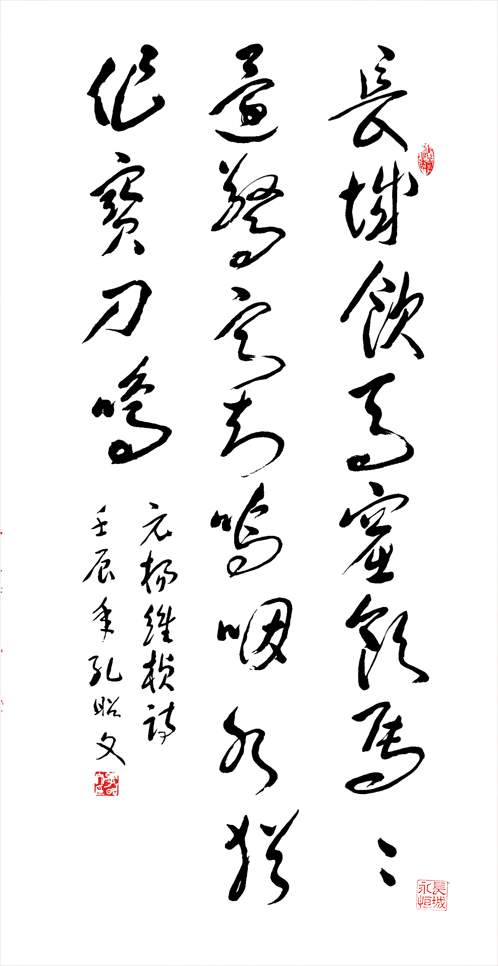 長城飲馬窟飲馬〻
還驚寧知嗚咽水猶
作寶刀鳴
元楊維楨詩
壬辰年孔昭文
長城永恒